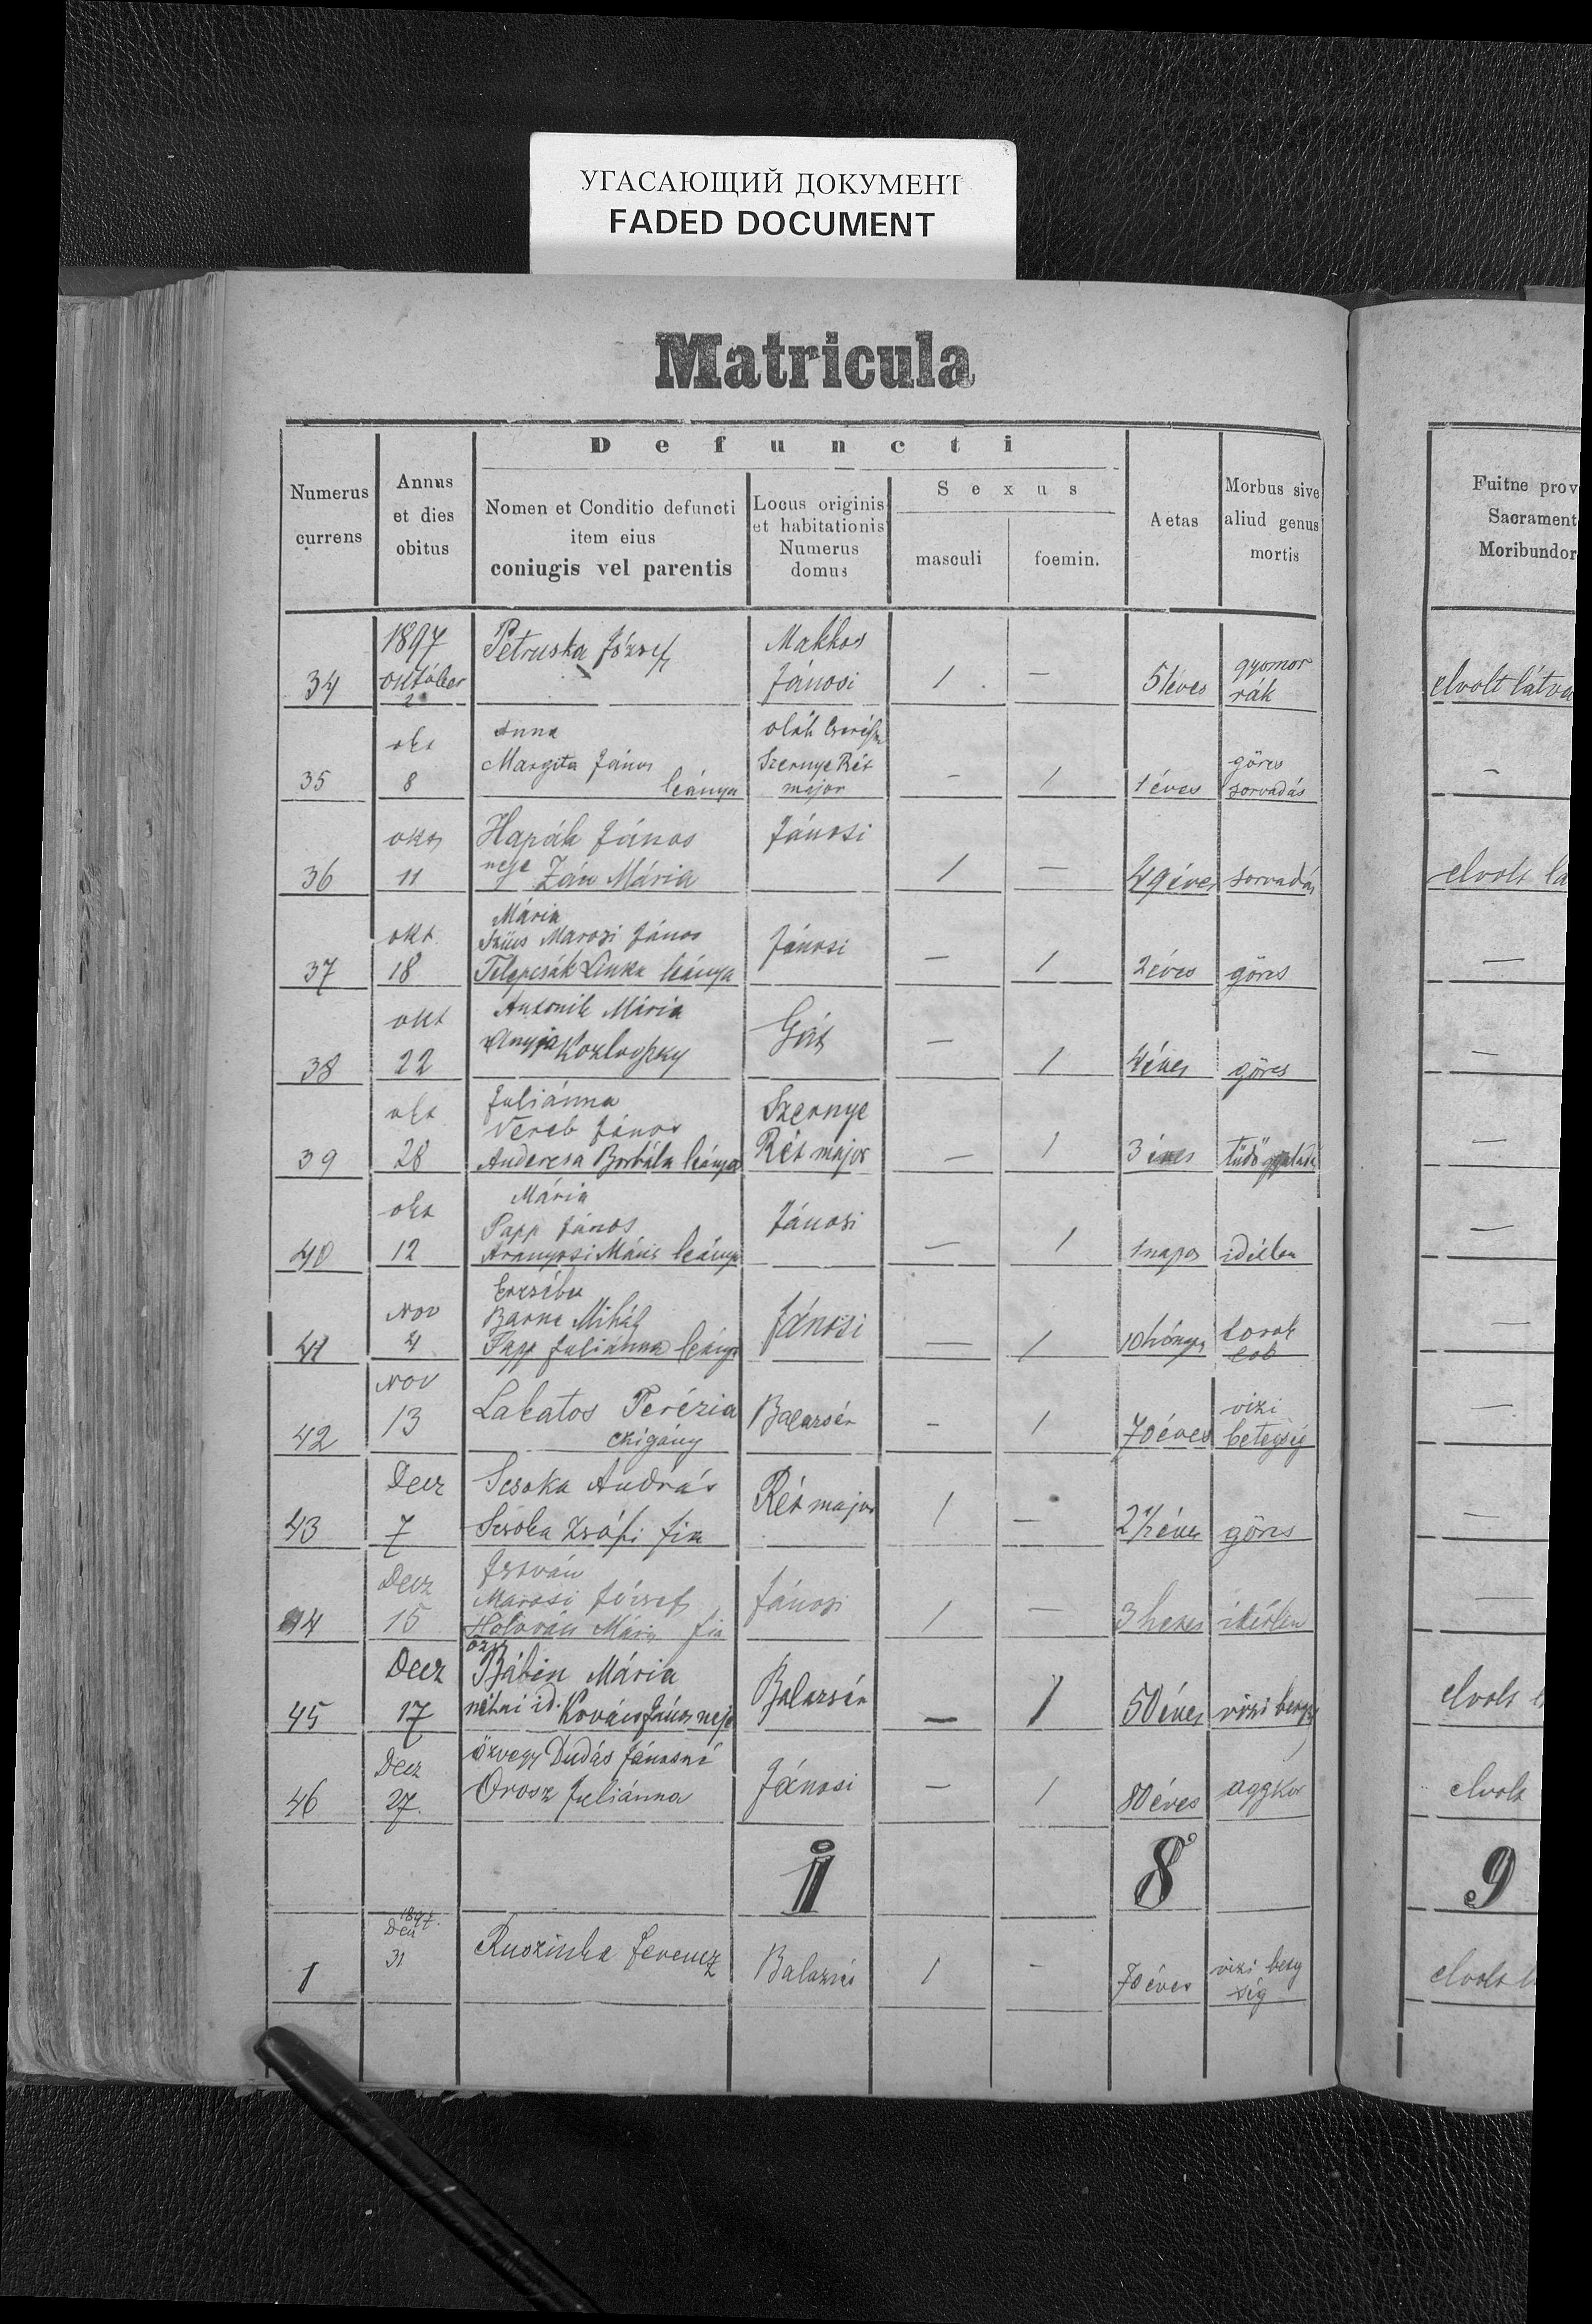 УГАСАЮЩИЙ ДОКУМЕНТ
FADED DOCUMENT
Matricula
Defuncti
Numerus currens
Annus et dies obitus
Nomen et Conditio defuncti
item eius
coniugis vel parentis
Locus originis
et habitationis
Numerus
domus
Sexus
masculi
foemin.
Aetas
Morbus sive
aliud genus
mortis
Fuitne prov
Sacrament
Moribundor
1897 Petruska József Makkos
34 október 2 Jánosi 1 — 51 éves gyomor rák elvolt látva
okt Anna oláh
35 8 Margita János leánya Szernye Rét major — 1 1 éves göres sorvadás —
okt Hapák János Jánosi
36 11 neje Zán Mária 1 — 49 éves sorvadás elvolt lá
okt Mária
Szűcs Marozi János Jánosi
37 18 Telepcsák Lenka leánya — 1 2 éves görcs —
okt Antonik Mária Gát
38 22 Anyja Kozlovszky — 1 4 éves görcs —
okt Juliánna Szernye
Veréb János
39 28 Anderesa Borbála leánya Rét major — 1 3 éves tüdő —
okt Mária
Papp János Jánosi
40 12 Aranyosi Mária leánya — 1 1 napos idétlen —
Nov Erzsébet
Barna Mihály Jánosi
41 4 Papp Juliánna leánya — 1 10 hónapos torok lob —
Nov
42 13 Lakatos Terézia czigány Balazsér — 1 70 éves vizi betegség —
Decz Scsoka András Rét major
43 7 Scsoka Zsófi fia 1 — 2 1/2 éves görcs —
Decz István
Marosi József Jánosi
44 15 Holován Mária fia 1 — 3 hetes idétlen —
Decz özv Bábin Mária Balazsér
45 17 néhai id. Kovács János neje — 1 50 éves vizi elvolt
Decz özvegy Dudás Jánosné
46 27. Orosz Juliánna Jánosi — 1 80 éves aggkor elvolt
1 8 9
1897.
Dec
1 31 Ruszinka Ferencz Balazsér 1 — 70 éves vizi beteg ség elvolt